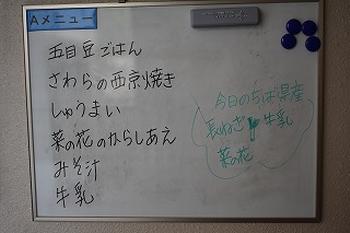 Aメニュー
五目豆ごはん
さわらの西京焼き
しゅうまい
菜の花のからしあえ
みそ汁
牛乳
今日のちば県産
長ねぎ 牛乳
菜の花